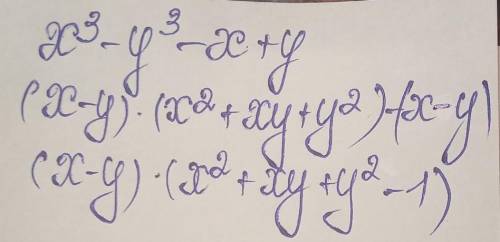 x³-y³-x+y
(x-y)·(x²+xy+y²)-(x-y)
(x-y)·(x²+xy+y²-1)